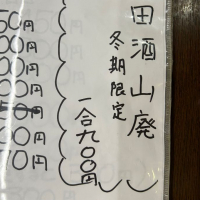 田酒山廃
冬期限定
一合九〇〇円
50円
00円
00円
00円
50円
00円
70円